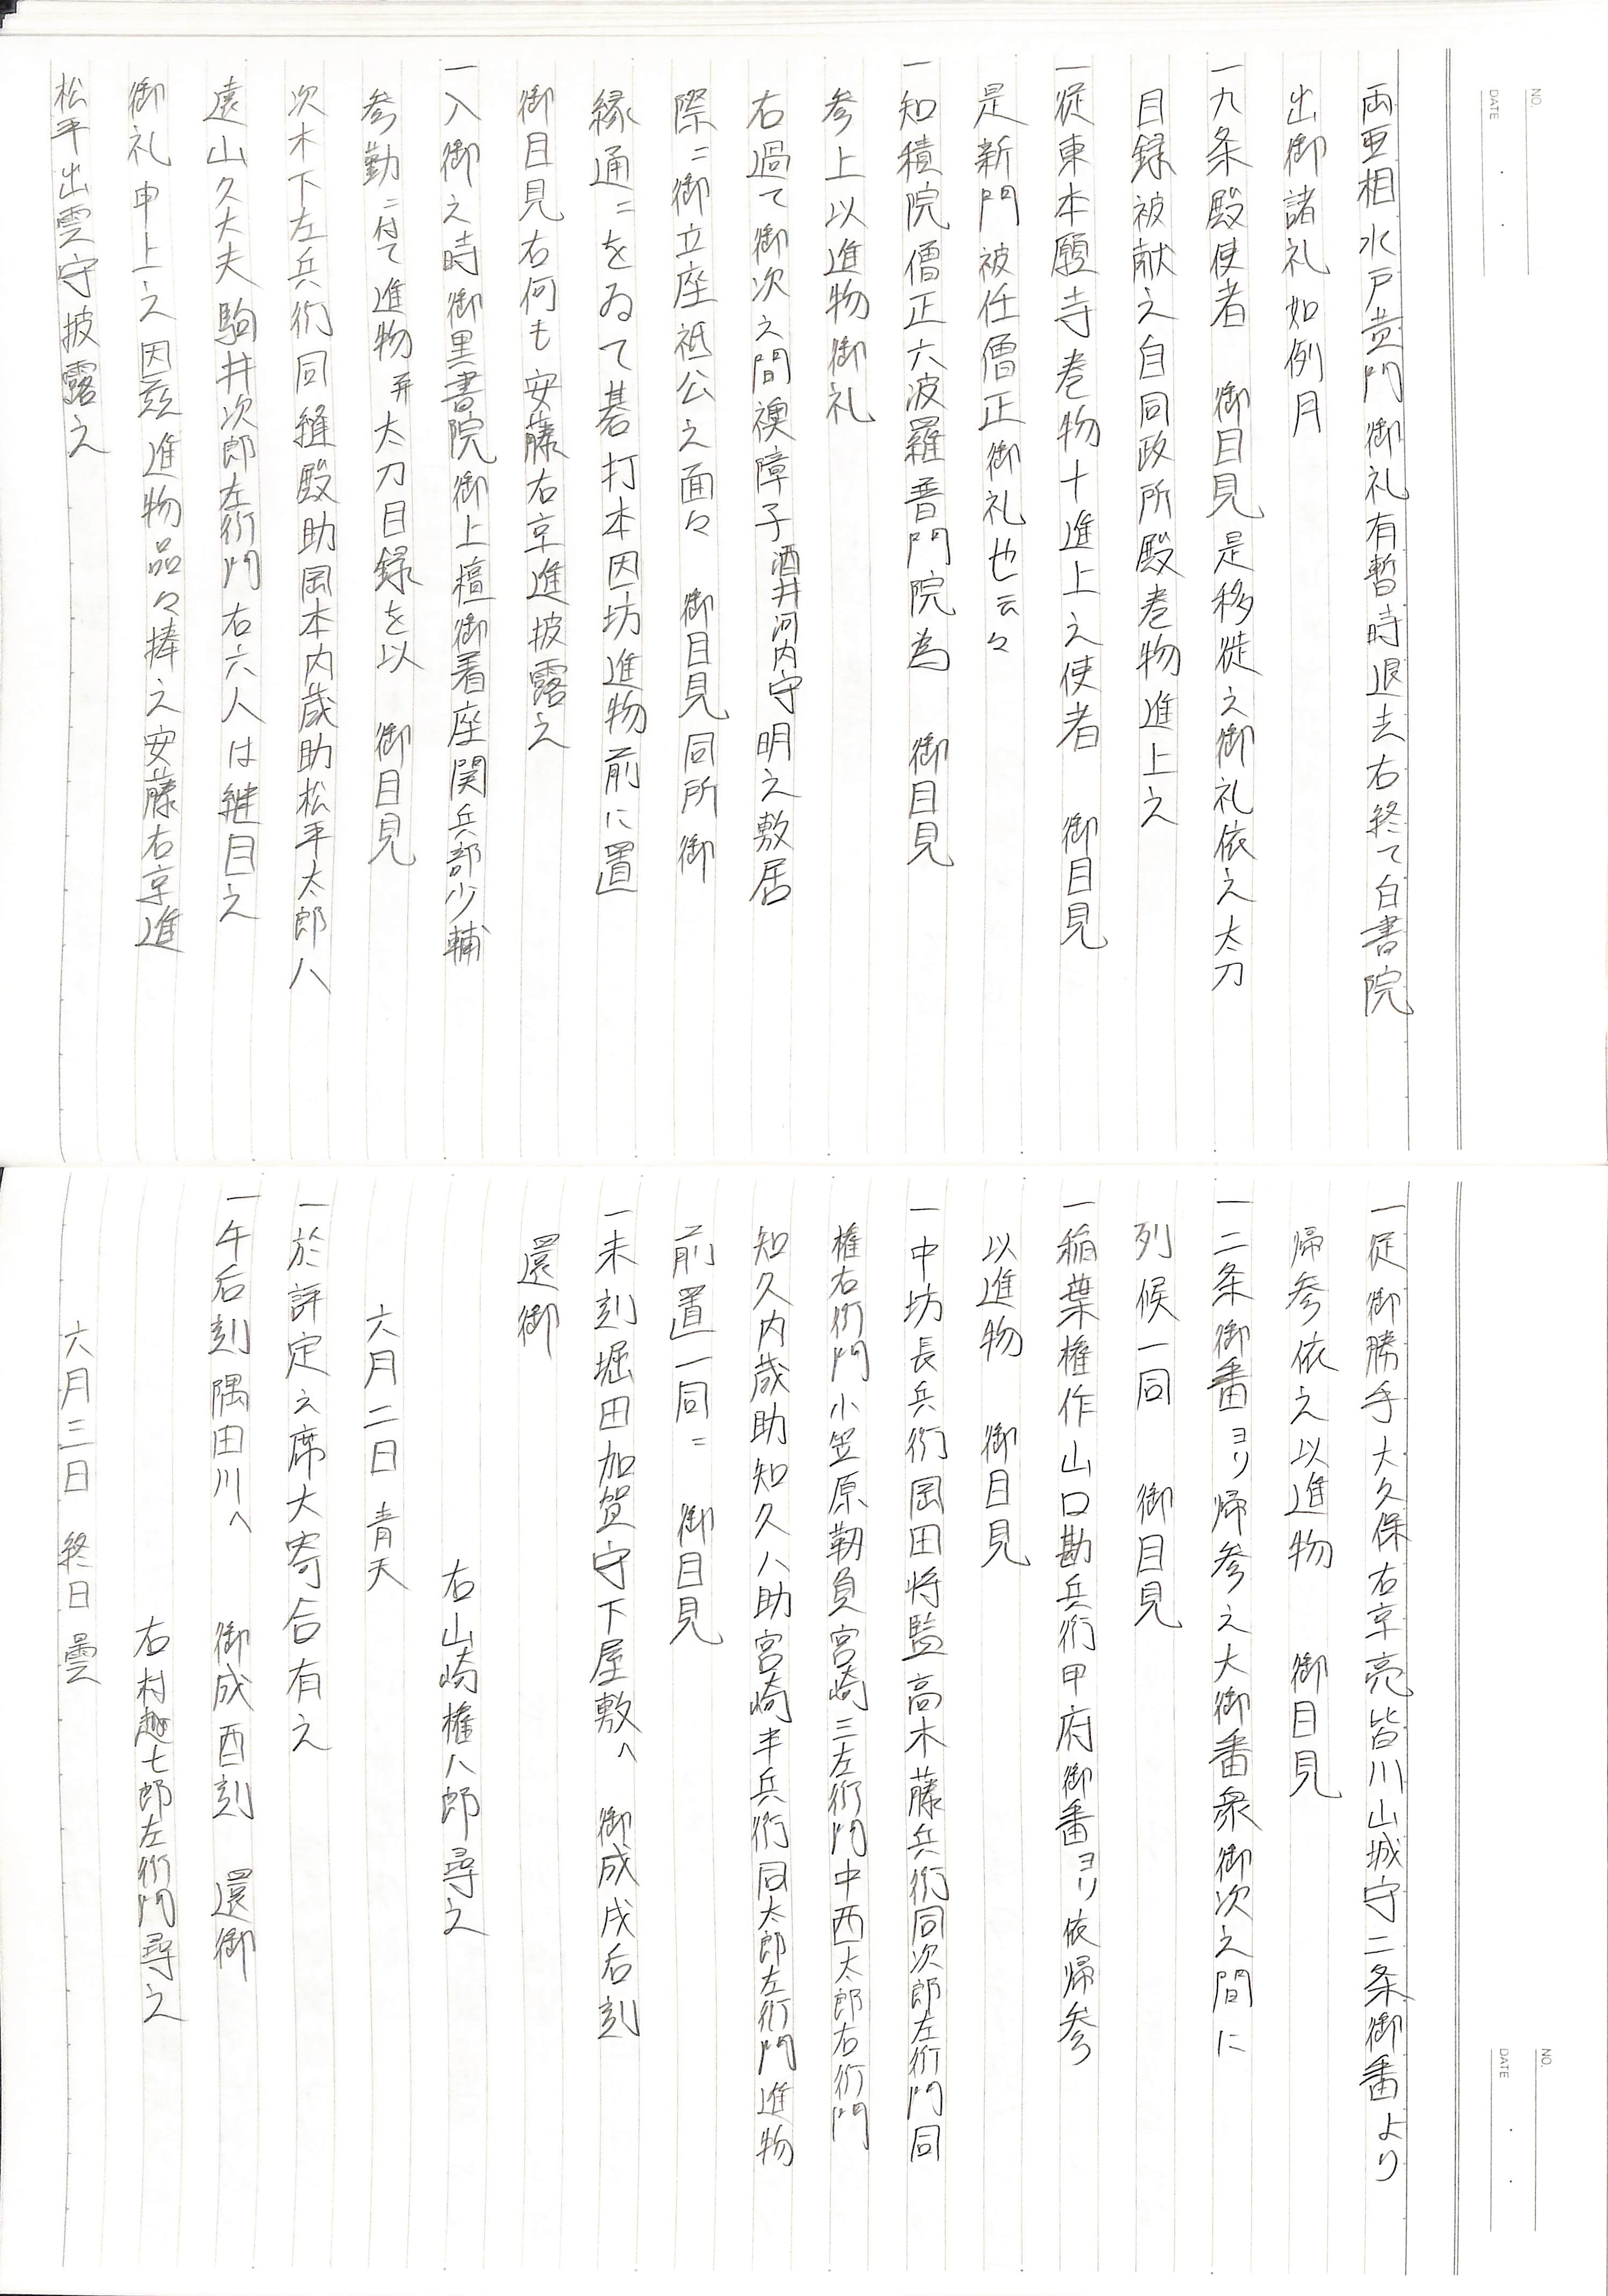 NO.
DATE
両亜相水戸黄門御礼有暫時退去右終て白書院
出御諸礼如例月
一九条殿使者 御目見是移徙之御礼依之太刀
目録被献之自同政所殿巻物進上之
一従東本願寺巻物十進上之使者 御目見
是新門被任僧正御礼也云々
一知積院僧正六波羅普門院為 御目見
参上以進物御礼
右過て御次之間襖障子酒井河内守明之敷居
際ニ御立座祗公之面々 御目見同所御
縁通ニをゐて碁打本因坊進物前に置
御目見右何も安藤右京進披露之
一入御之時御黒書院御上檀御着座関兵部少輔
参勤ニ付て進物并太刀目録を以 御目見
次木下左兵衛同縫殿助岡本内蔵助松平太郎八
遠山久大夫駒井次郎左衛門右六人は継目之
御礼申上之因茲進物品々捧之安藤右京進
松平出雲守披露之
NO.
DATE
一従御勝手大久保右京亮皆川山城守二条御番より
帰参依之以進物 御目見
一二条御番ヨリ帰参之大御番衆御次之間に
列候一同 御目見
一稲葉権作山口勘兵衛甲府御番ヨリ依帰参
以進物 御目見
一中坊長兵衛岡田将監高木藤兵衛同次郎左衛門同
権右衛門小笠原靭負宮崎三左衛門中西太郎右衛門
知久内蔵助知久八助宮崎半兵衛同太郎左衛門進物
前置一同ニ 御目見
一未刻堀田加賀守下屋敷へ 御成戌后刻
還御
右山崎権八郎尋之
六月二日 青天
一於評定之席大寄合有之
一午后刻隅田川へ 御成酉刻 還御
右村越七郎左衛門尋之
六月三日 終日曇